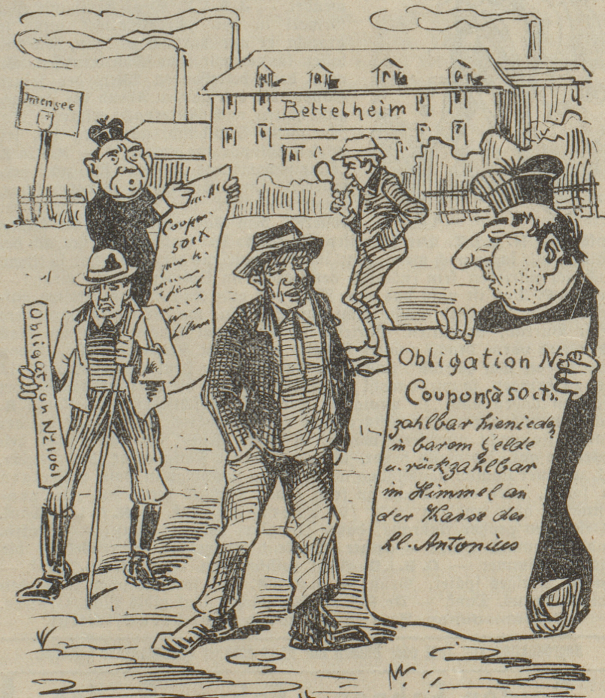 Immensee
Bettelheim
Coupon
50 cts
Obligation No. 1061
Obligation No
Coupons à 50 cts.
zahlbar hienieden
in barem Gelde
u. rückzahlbar
im Himmel an
der Kasse des
hl. Antonius